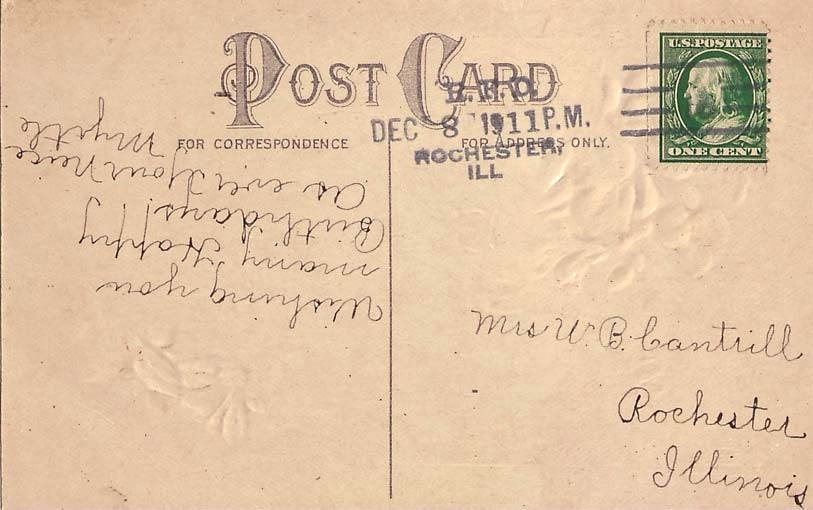 POST CARD
R.F.D.
DEC 8 1911 P.M.
ROCHESTER,
ILL
U.S. POSTAGE
ONE CENT
FOR CORRESPONDENCE
FOR ADDRESS ONLY.
Wishing you
many Happy
Birthdays!
As ever your neice
Myrtle
Mrs W. B. Cantrill
Rochester
Illinois